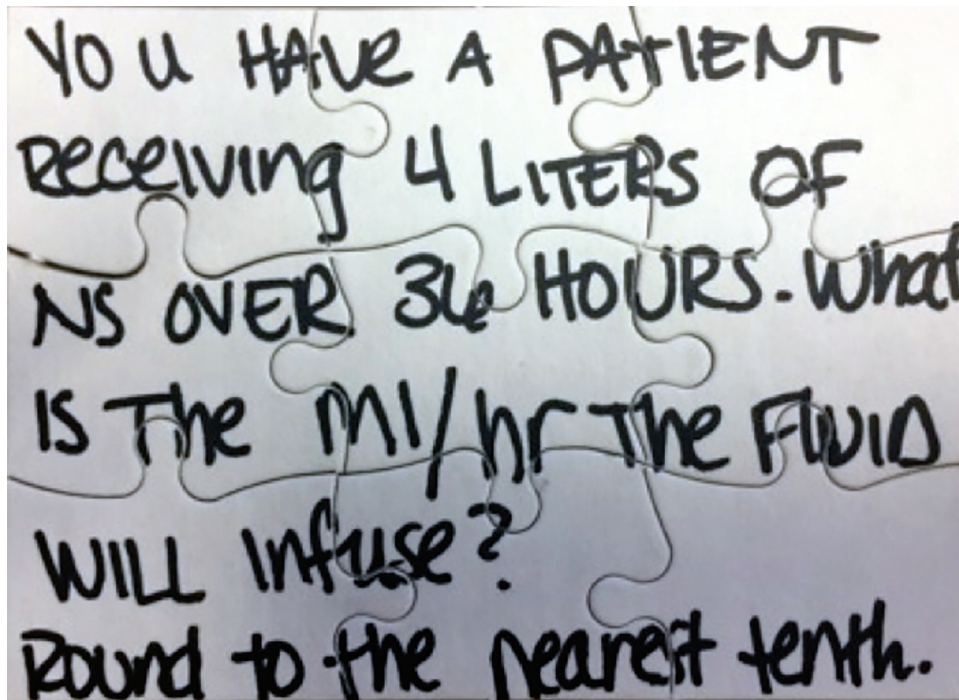 YOU HAVE A PATIENT
Receiving 4 LITERS OF
NS OVER 36 HOURS. What
IS The ml/hr The FLUID
WILL Infuse?
Round to the nearest tenth.